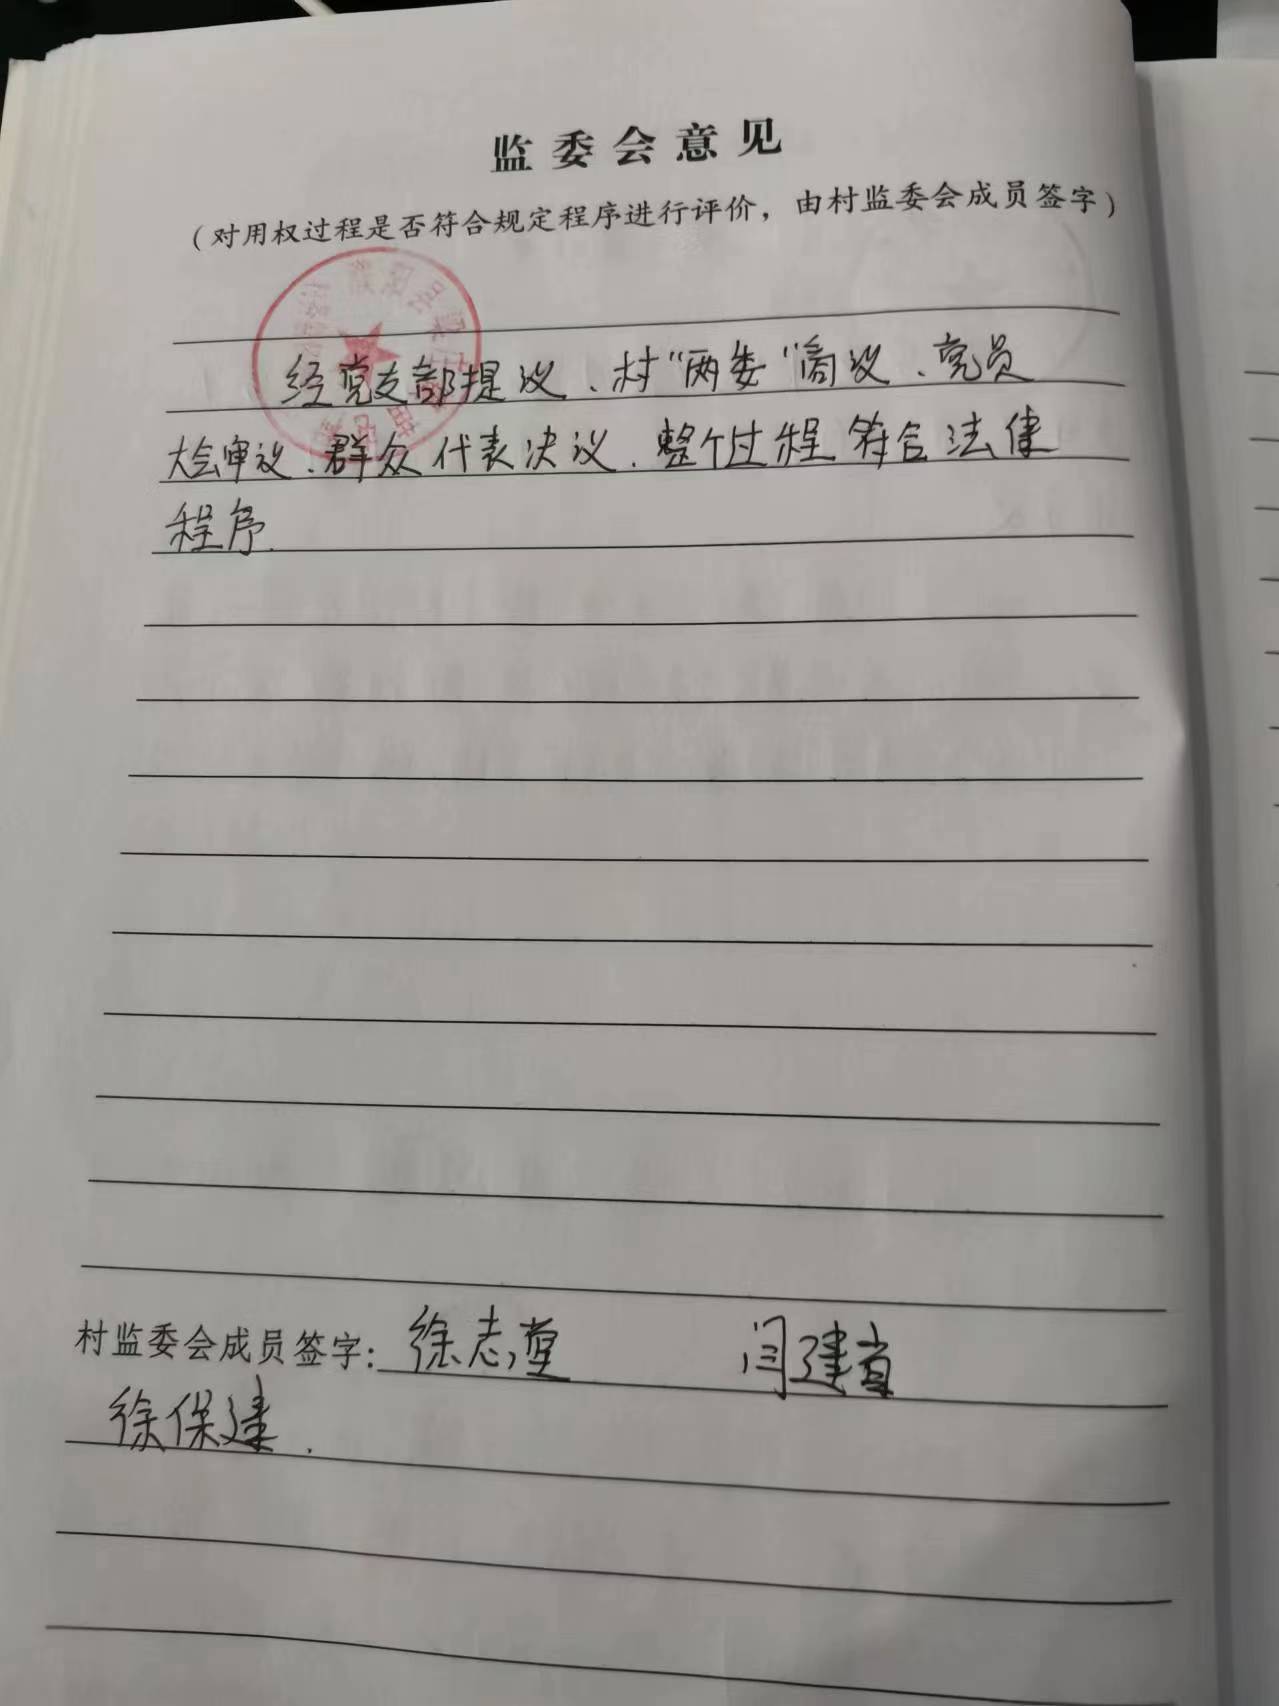 监委会意见
（对用权过程是否符合规定程序进行评价，由村监委会成员签字）
经党支部提议、村“两委”商议、党员
大会审议、群众代表决议、整个过程符合法律
程序.
村监委会成员签字：徐志堂 闫建省
徐保建.